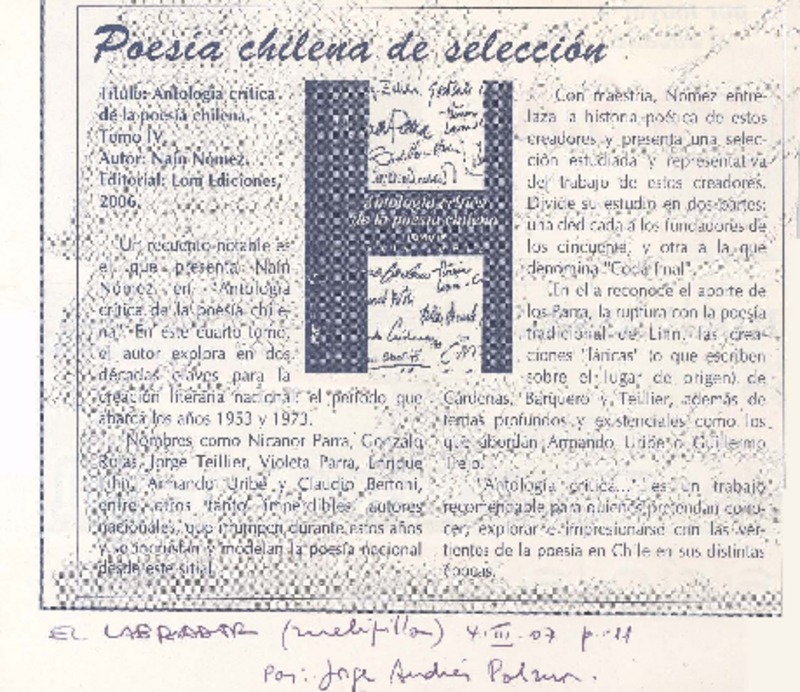 Poesía chilena de selección
Título: Antología crítica
de la poesía chilena.
Tomo IV.
Autor: Naín Nómez.
Editorial: Lom Ediciones,
2006.
Un recuento notable es
el que presenta Naín
Nómez en "Antología
crítica de la poesía chile-
na". En este cuarto tomo,
el autor explora en dos
décadas claves para la
creación literaria nacional: el período que
abarca los años 1953 y 1973.
Nombres como Nicanor Parra, Gonzalo
Rojas, Jorge Teillier, Violeta Parra, Enrique
Lihn, Armando Uribe y Claudio Bertoni,
entre otros tanto imperdibles autores
nacionales, que irrumpen durante estos años
y se incrustan y modelan la poesía nacional
desde este sitial.
Antología crítica
de la poesía chilena
Con maestría, Nómez entre-
laza la historia poética de estos
creadores y presenta una selec-
ción estudiada y representativa
del trabajo de estos creadores.
Divide su estudio en dos partes:
una dedicada a los fundadores de
los cincuenta, y otra a la que
denomina "Coda final".
En ella reconoce el aporte de
los Parra, la ruptura con la poesía
tradicional de Lihn, las crea-
ciones 'láricas' (o que escriben
sobre el lugar de origen) de
Cárdenas, Barquero y Teillier, además de
temas profundos y existenciales como los
que abordan Armando Uribe o Guillermo
Trejo.
"Antología crítica..." es un trabajo
recomendable para quienes pretendan cono-
cer, explorar e impresionarse con las ver-
tientes de la poesía en Chile en sus distintas
épocas.
EL LABRADOR (melipilla) 4.III.07 p.11
Por: Jorge Andrés